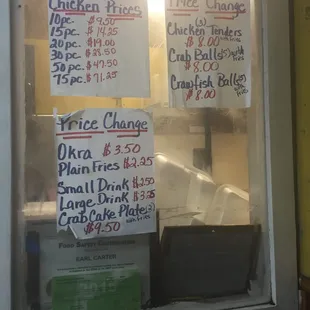 Chicken Prices
10pc. $9.50
15pc. $14.25
20pc. $19.00
30pc. $28.50
50pc. $47.50
75pc. $71.25
Price Change
(3)
Chicken Tenders
$8.00
Crab Balls (5)
$8.00
Crawfish Balls (5)
$8.00
Price Change
Okra $3.50
Plain Fries $2.25
Small Drink $2.50
Large Drink $3.25
Crab Cake Plate (2)
$9.50 with fries
Food Safety
EARL CARTER